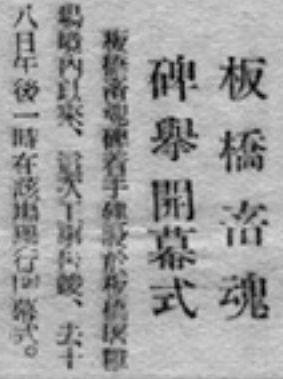 板橋畜魂
碑舉開幕式
板橋畜魂碑着手建設於板橋
內以來、這次工事告竣、去十
八日午後一時在該地舉行開幕式。